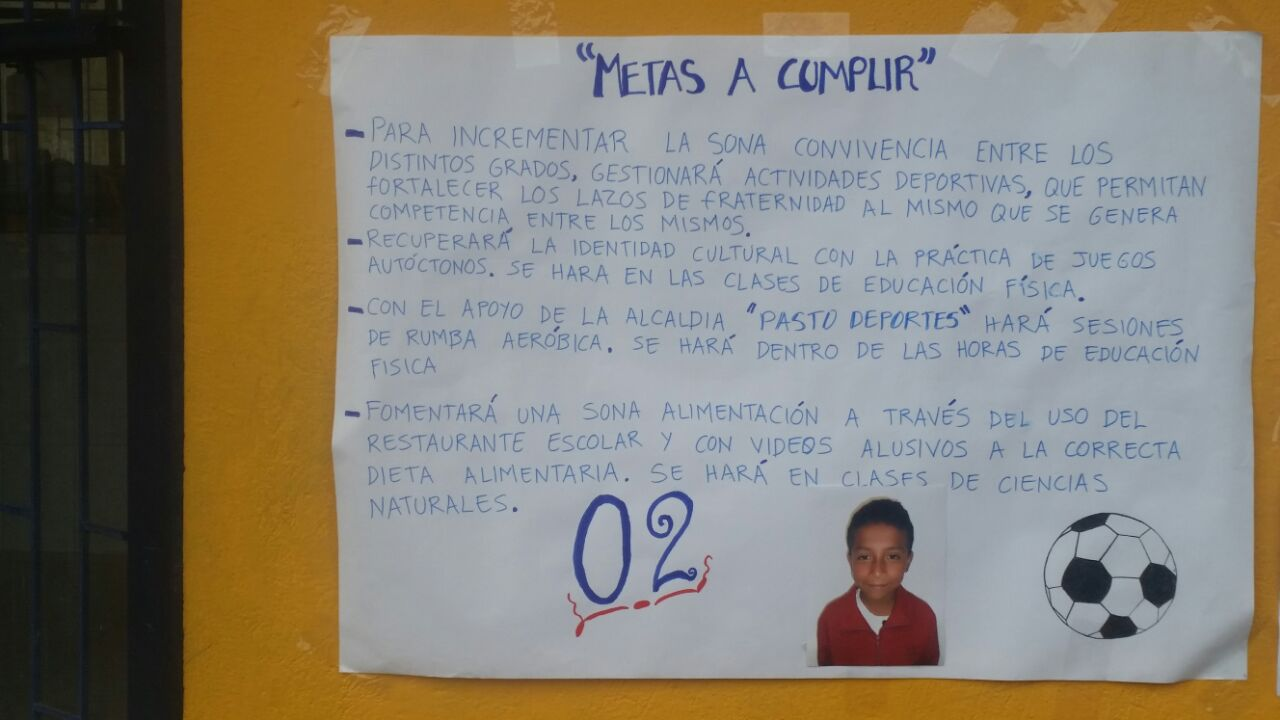 "METAS A CUMPLIR"
- PARA INCREMENTAR LA SONA CONVIVENCIA ENTRE LOS
DISTINTOS GRADOS, GESTIONARÁ ACTIVIDADES DEPORTIVAS, QUE PERMITAN
FORTALECER LOS LAZOS DE FRATERNIDAD AL MISMO QUE SE GENERA
COMPETENCIA ENTRE LOS MISMOS.
- RECUPERARÁ LA IDENTIDAD CULTURAL CON LA PRÁCTICA DE JUEGOS
AUTÓCTONOS. SE HARA EN LAS CLASES DE EDUCACIÓN FÍSICA.
- CON EL APOYO DE LA ALCALDIA "PASTO DEPORTES" HARÁ SESIONES
DE RUMBA AERÓBICA. SE HARÁ DENTRO DE LAS HORAS DE EDUCACIÓN
FISICA
- FOMENTARÁ UNA SONA ALIMENTACIÓN A TRAVÉS DEL USO DEL
RESTAURANTE ESCOLAR Y CON VIDEOS ALUSIVOS A LA CORRECTA
DIETA ALIMENTARIA. SE HARÁ EN CLASES DE CIENCIAS
NATURALES.
02